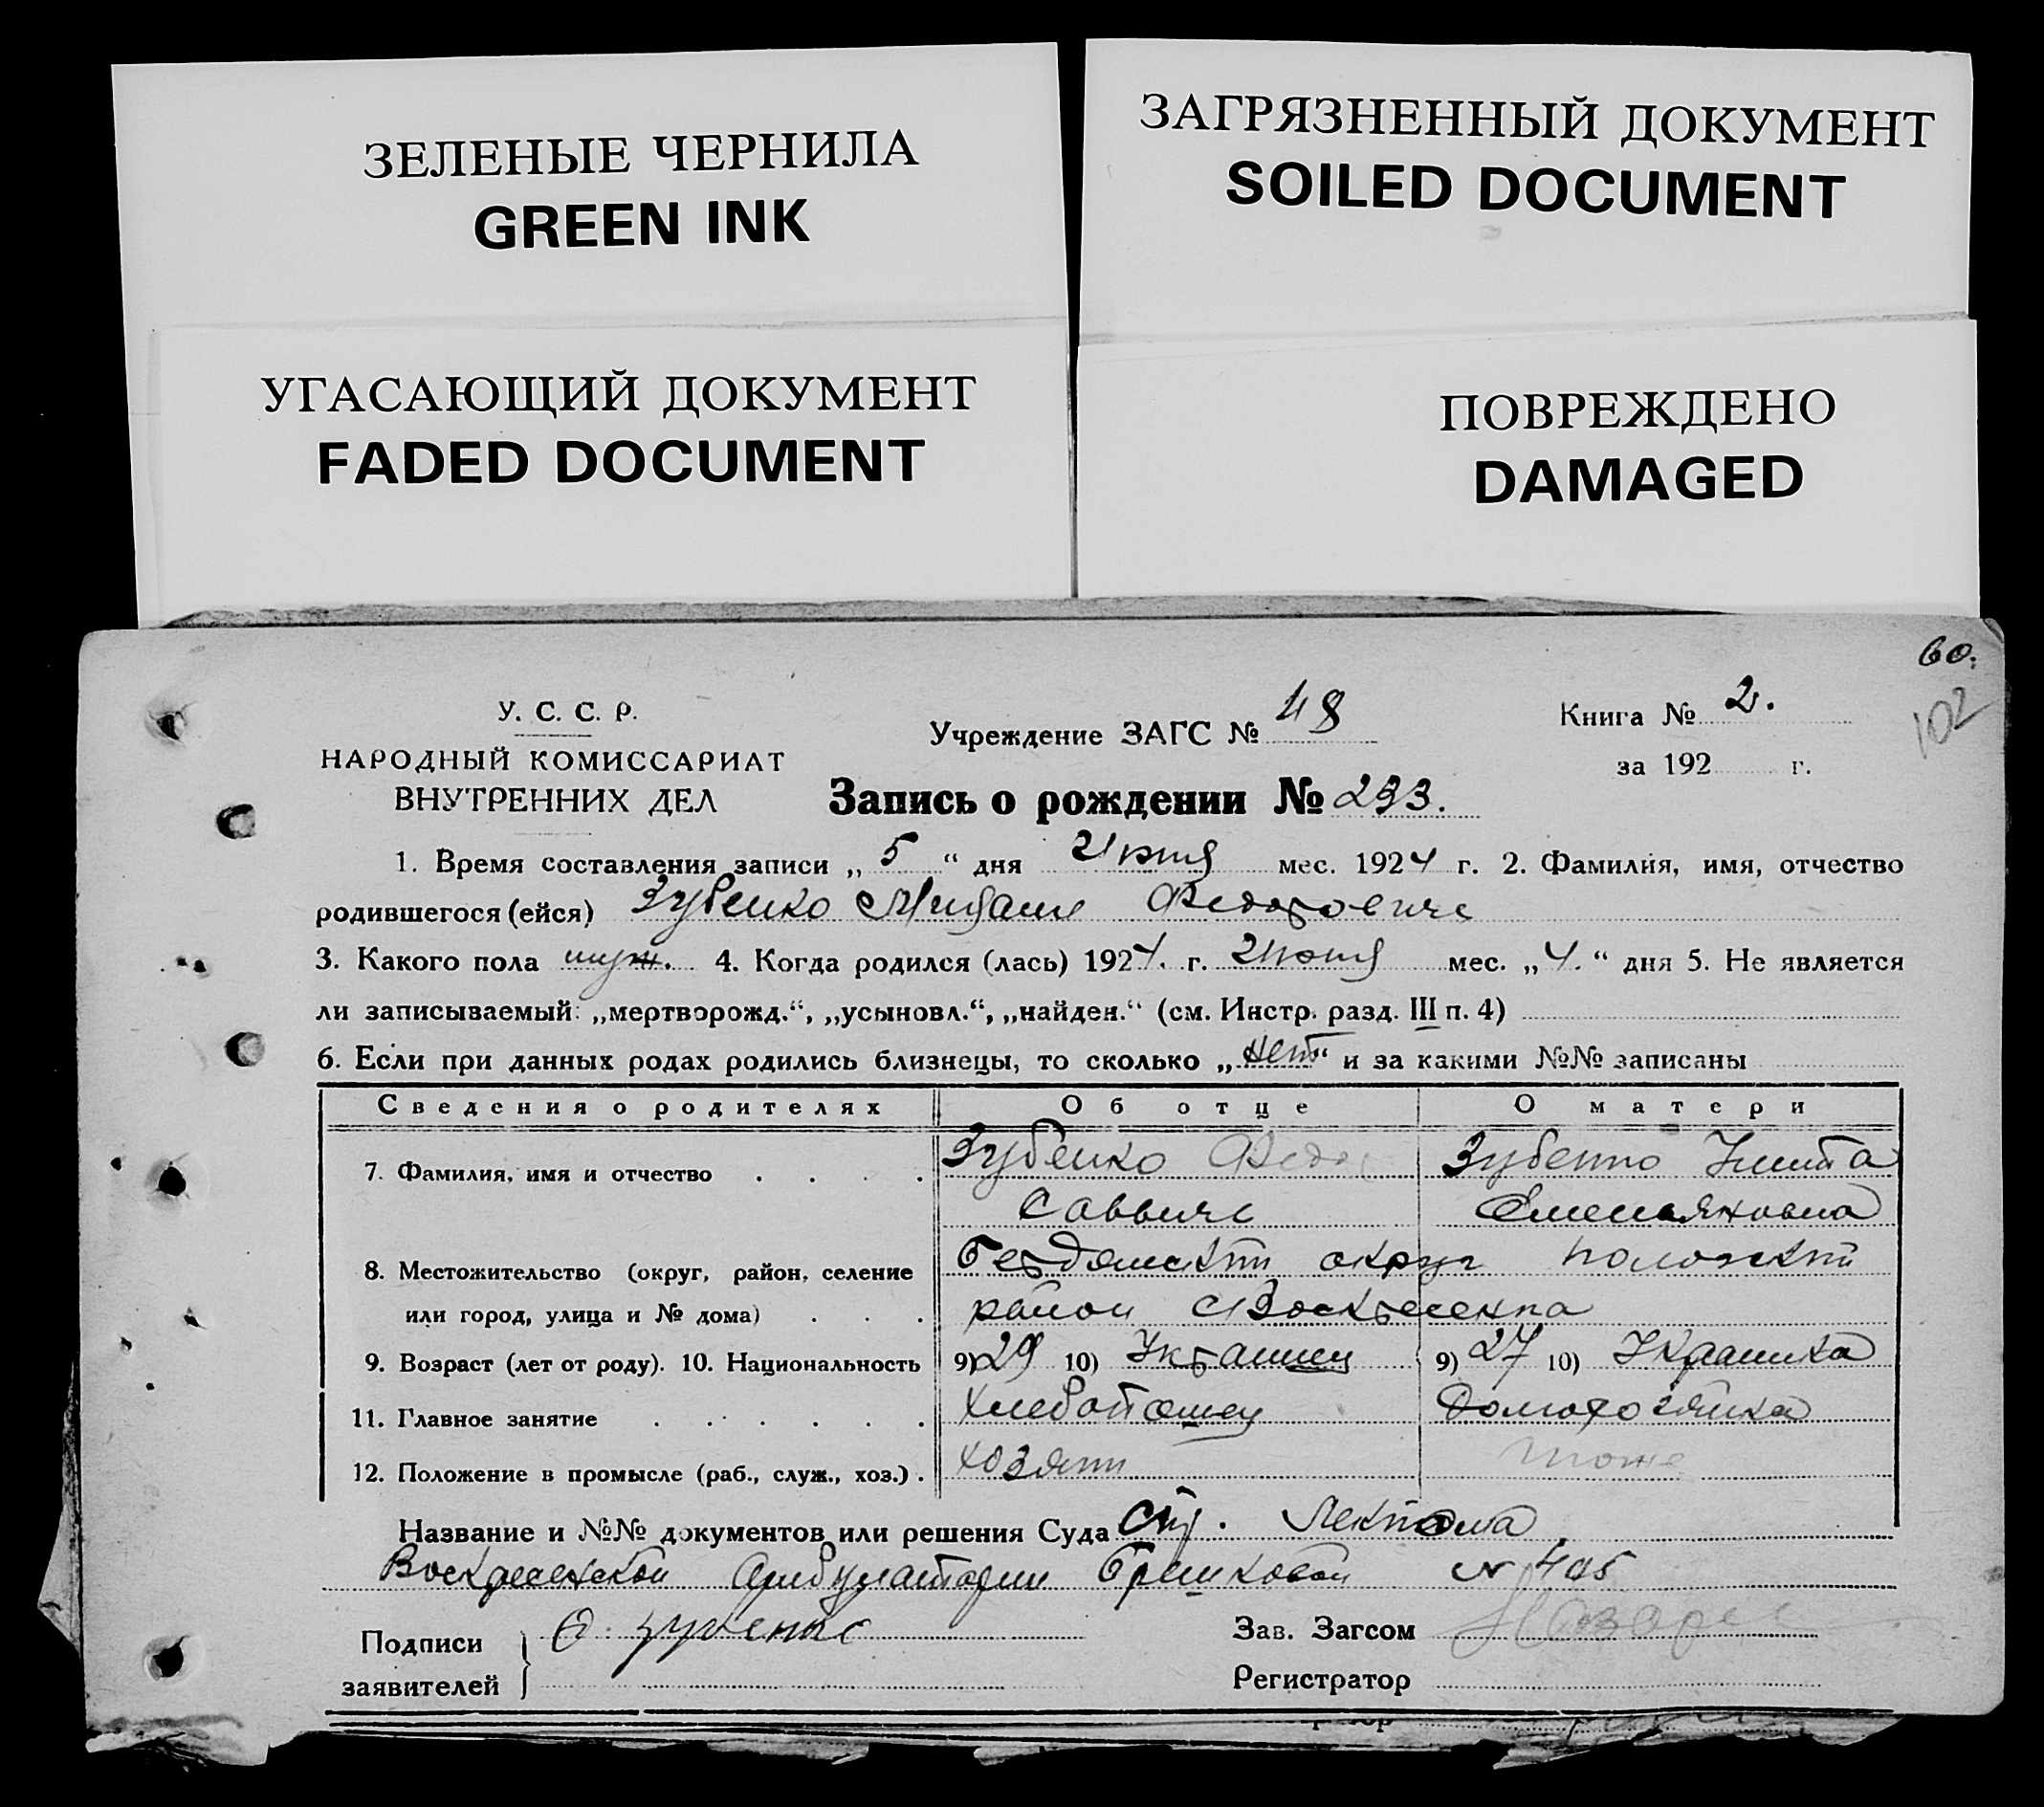 ЗЕЛЕНЫЕ ЧЕРНИЛА
GREEN INK
ЗАГРЯЗНЕННЫЙ ДОКУМЕНТ
SOILED DOCUMENT
УГАСАЮЩИЙ ДОКУМЕНТ
FADED DOCUMENT
ПОВРЕЖДЕНО
DAMAGED
60.
102
У. С. С. Р.
НАРОДНЫЙ КОМИССАРИАТ
ВНУТРЕННИХ ДЕЛ
Учреждение ЗАГС № 48
Книга № 2.
за 192 г.
Запись о рождении № 233.
1. Время составления записи „ 5 “ дня мес. 1924 г. 2. Фамилия, имя, отчество
родившегося (ейся) Зубенко Федорович
3. Какого пола муж. 4. Когда родился (лась) 1924. г. мес. „4.“ дня 5. Не является
ли записываемый: „мертворожд.“, „усыновл.“, „найден.“ (см. Инстр. разд. III п. 4)
6. Если при данных родах родились близнецы, то сколько „нет“ и за какими №№ записаны
Сведения о родителях Об отце О матери
7. Фамилия, имя и отчество Зубенко Федор Зубенко
Саввич Емельяновна
8. Местожительство (округ, район, селение округ
или город, улица и № дома) район
9. Возраст (лет от роду). 10. Национальность 9) 29 10) Украинец 9) 27 10) Украинка
11. Главное занятие Хлебопашец Домохозяйка
12. Положение в промысле (раб., служ., хоз.) хозяин тоже
Название и №№ документов или решения Суда
Воскресенской Амбулатории № 405
Подписи заявителей Зубенко
Зав. Загсом
Регистратор